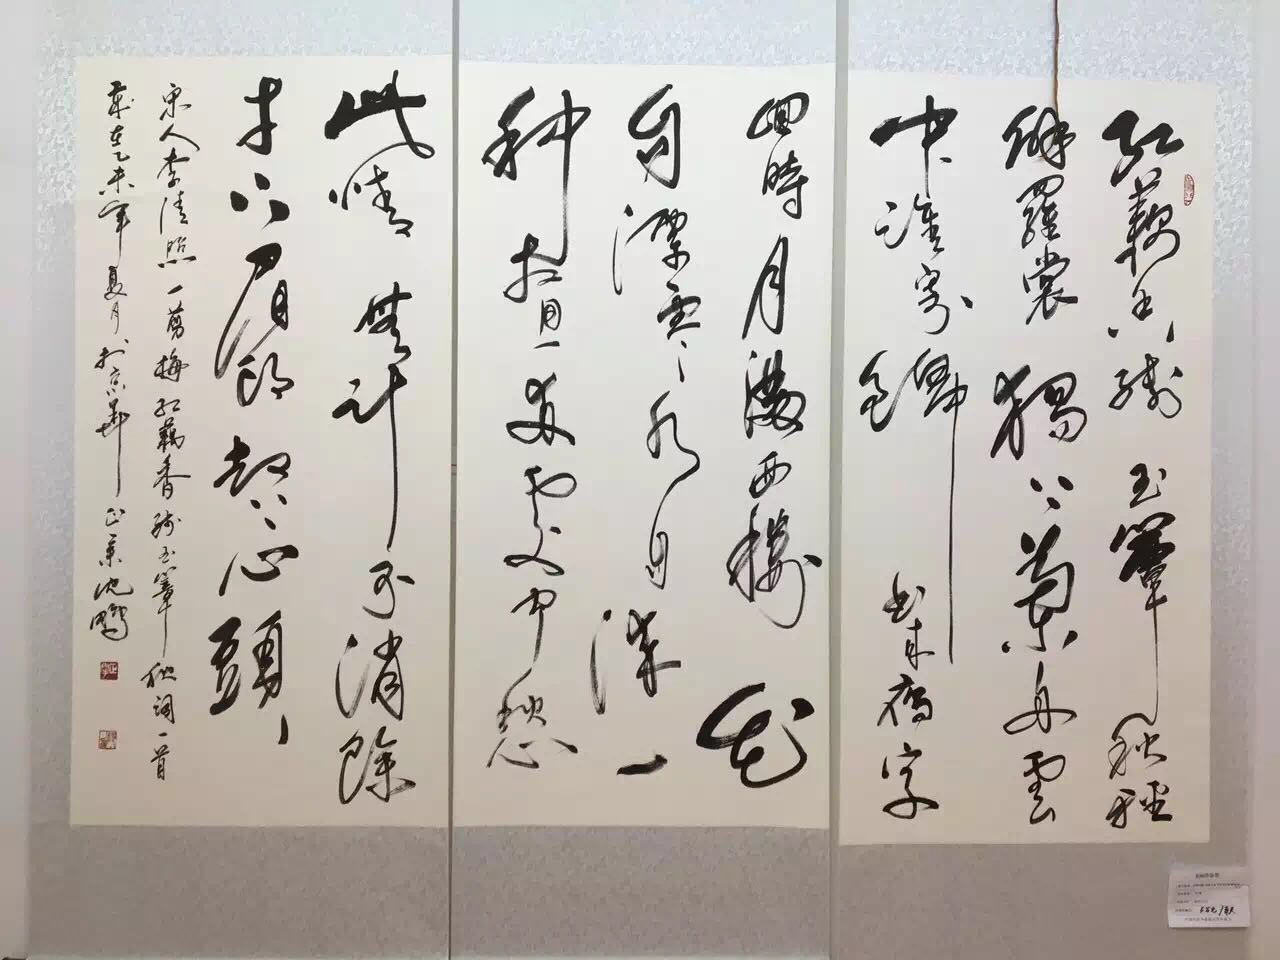 紅藕香殘玉簟秋輕
解羅裳獨上蘭舟雲
中誰寄錦書來雁字
回時月滿西樓花
自漂零水自流一
种相思一處閒愁
此情無计可消除
才下眉頭却上心頭
宋人李清照一剪梅紅藕香殘玉簟秋词一首
歲在乙未年夏月於京華